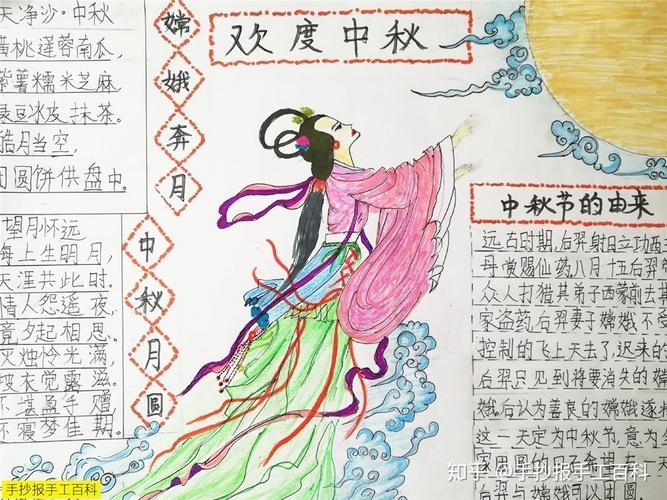 欢度中秋
嫦娥奔月
中秋月圆
天净沙·中秋
黄桃莲蓉南瓜,
紫薯糯米芝麻
绿豆冰皮抹茶。
皓月当空,
团圆饼供盘中。
望月怀远
海上生明月,
天涯共此时。
情人怨遥夜,
竟夕起相思。
灭烛怜光满,
披衣觉露滋。
不堪盈手赠
还寝梦佳期。
中秋节的由来
远古时期,后羿射日立功西
母赏赐仙药八月十五后羿
众人打猎其弟子西蒙前去其
家盗药,后羿妻子嫦娥不受
控制的飞上天去了,迟来的
后羿只见到将要消失的嫦
娥后认为善良的嫦娥逐
这一天定为中秋节,意为
家团圆的日子希望有一天
后羿与嫦娥可以团圆
知乎 @手抄报手工百科
手抄报手工百科